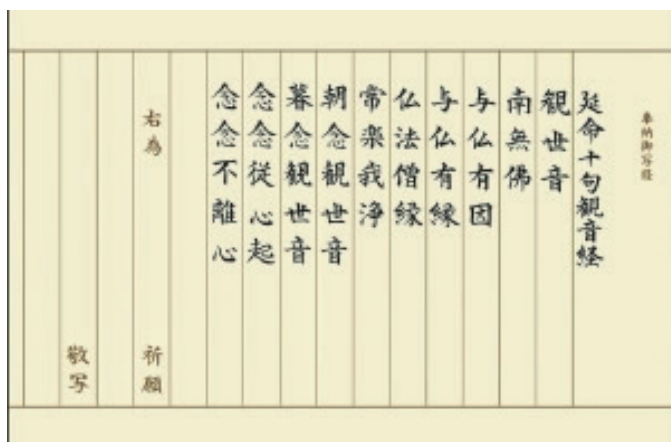 奉納御写経
延命十句観音経
観世音
南無佛
与仏有因
与仏有縁
仏法僧縁
常楽我浄
朝念観世音
暮念観世音
念念従心起
念念不離心
右為 祈願
敬写